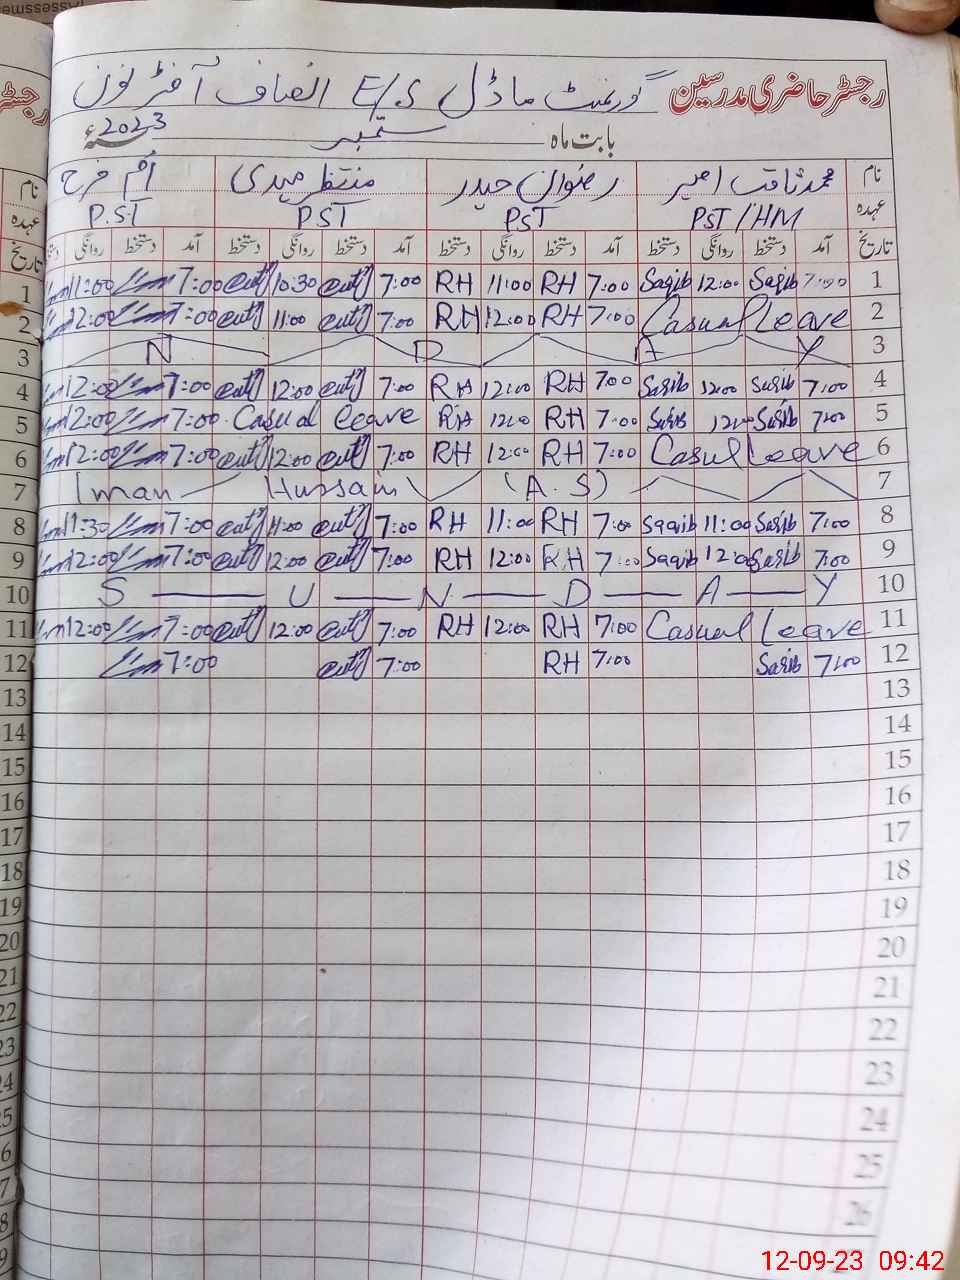 رجسٹر حاضری مدرسین گورنمنٹ ماڈل E/S انصاف آفٹر نون
بابت ماہ ستمبر 2023ء
نام محمد ثاقب امیر رضوان حیدر منتظر مہدی ام فرح
عہدہ PST/HM PST PST P.S.T
تاریخ آمد دستخط روانگی دستخط آمد دستخط روانگی دستخط آمد دستخط روانگی دستخط آمد دستخط روانگی
11:00 7:00 10:30 7:00 RH 11:00 RH 7:00 Saqib 12:00 Saqib 7:00 1
12:00 7:00 11:00 7:00 RH 12:00 RH 7:00 Casual Leave 2
N D A Y 3
12:00 7:00 12:00 7:00 RH 12:00 RH 7:00 Saqib 12:00 Saqib 7:00 4
12:00 7:00 Casual leave RH 12:00 RH 7:00 12:00 Saqib 7:00 5
12:00 7:00 12:00 7:00 RH 12:00 RH 7:00 Casul Leave 6
Iman Hussain (A.S) 7
11:30 7:00 11:00 7:00 RH 11:00 RH 7:00 Saqib 11:00 Saqib 7:00 8
12:00 7:00 12:00 7:00 RH 12:00 RH 7:00 Saqib 12:00 Saqib 7:00 9
S U N D A Y 10
12:00 7:00 12:00 7:00 RH 12:00 RH 7:00 Casual Leave 11
7:00 7:00 RH 7:00 Saqib 7:00 12
13
14
15
16
17
18
19
20
21
22
23
24
25
26
12-09-23 09:42